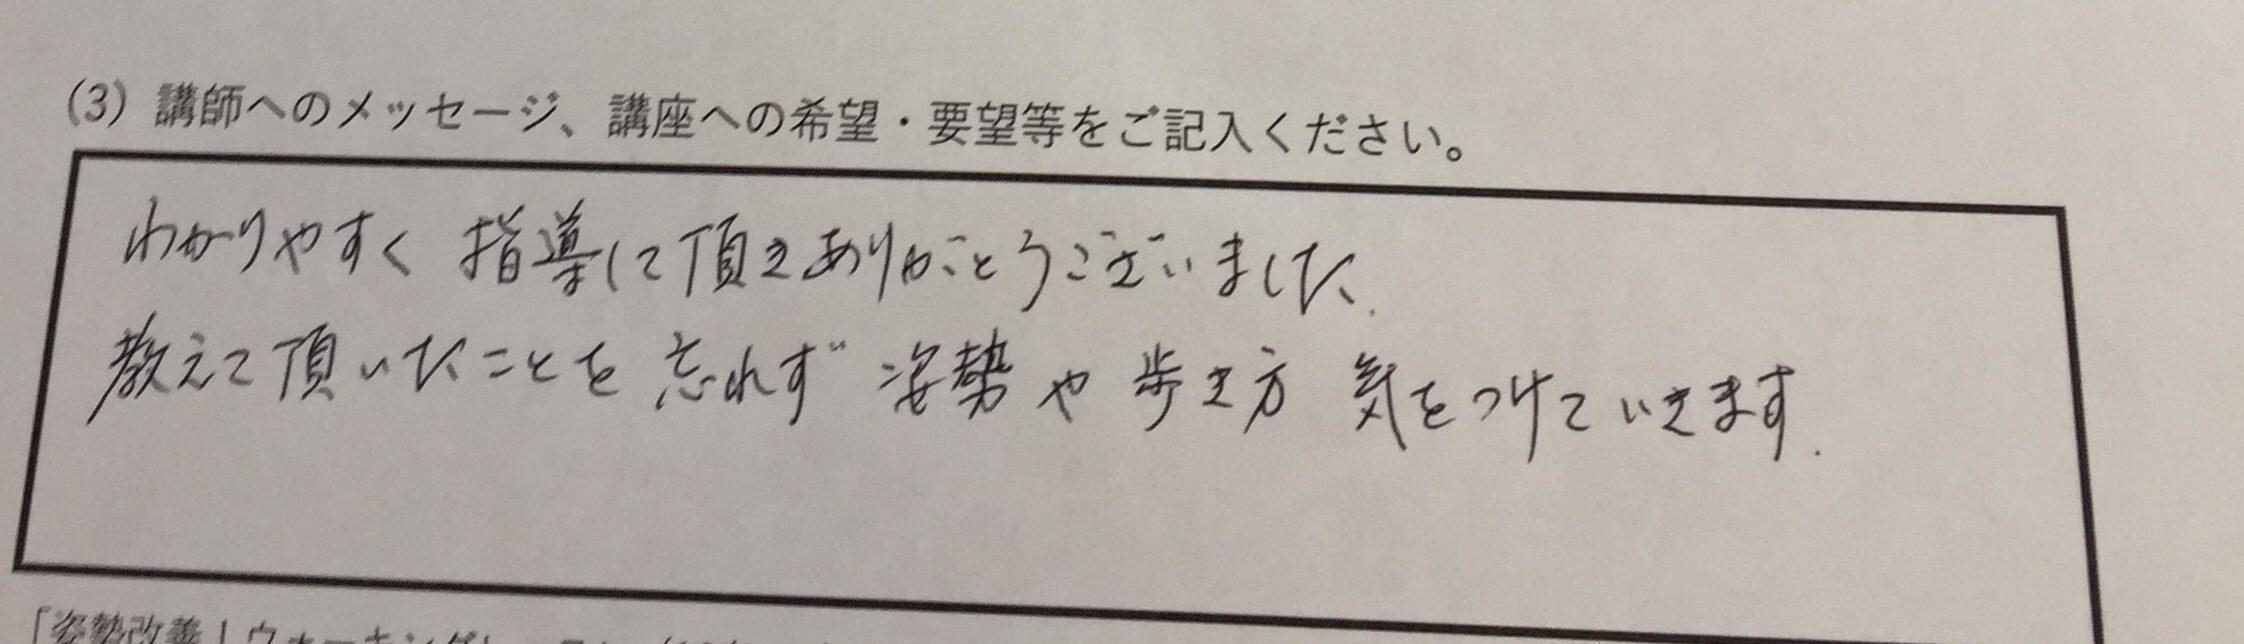 (3) 講師へのメッセージ、講座への希望・要望等をご記入ください。
わかりやすく 指導して頂きありがとうございました.
教えて頂いたことを 忘れず 姿勢 や 歩き方 気をつけていきます.
「姿勢改善」ウォーキング